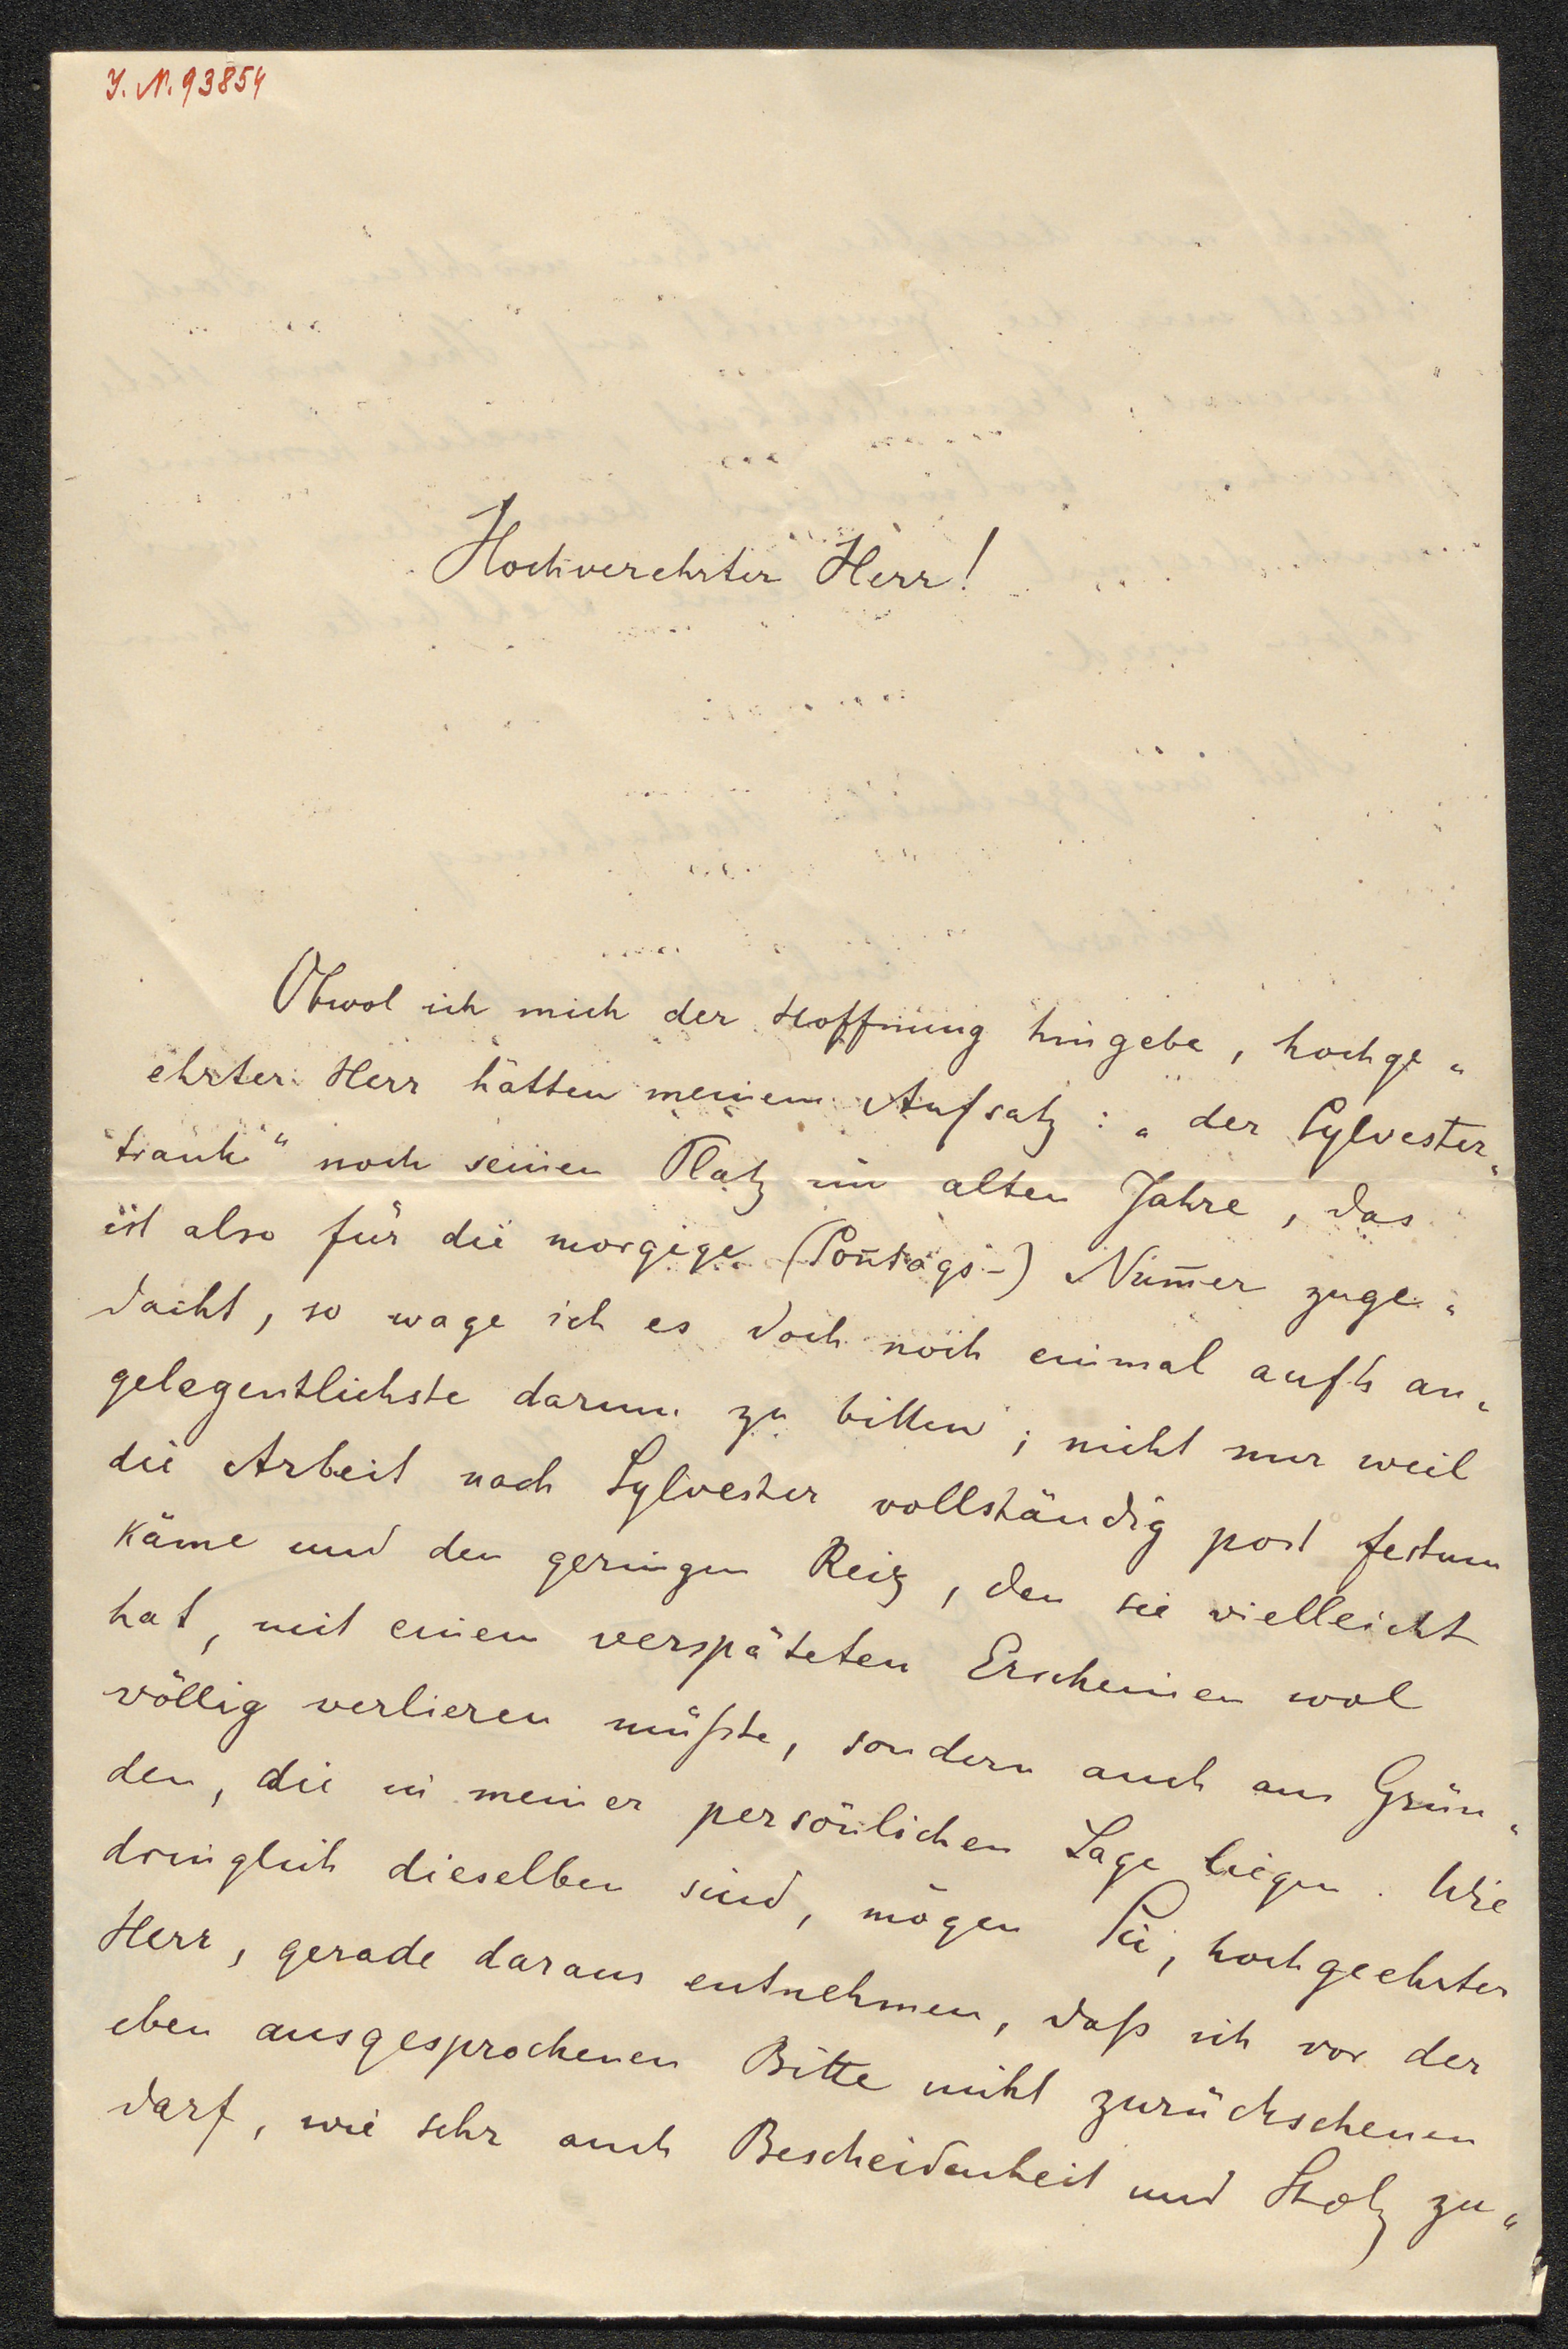 J. N. 93854
Hochverehrter Herr!
Obwol ich mich der Hoffnung hingebe, hochge„
ehrter Herr hätten meinem Aufsatz: „der Sylvester„
trank“ noch seinen Platz im alten Jahre, das
ist also für die morgige (Son̄tags-) Num̄er zuge„
dacht, so wage ich es doch noch einmal aufs an„
gelegentlichste darum zu bitten; nicht nur weil
die Arbeit nach Sylvester vollständig post festum
käme und den geringen Reiz, den sie vielleicht
hat, mit einem verspäteten Erscheinen wol
völlig verlieren müßte, sondern auch aus Grün„
den, die in meiner persönlichen Lage liegen. Wie
dringlich dieselben sind, mögen Sie, hochgeehrter
Herr, gerade daraus entnehmen, daß ich vor der
eben ausgesprochenen Bitte nicht zurückscheuen
darf, wie sehr auch Bescheidenheit und Stolz zu„